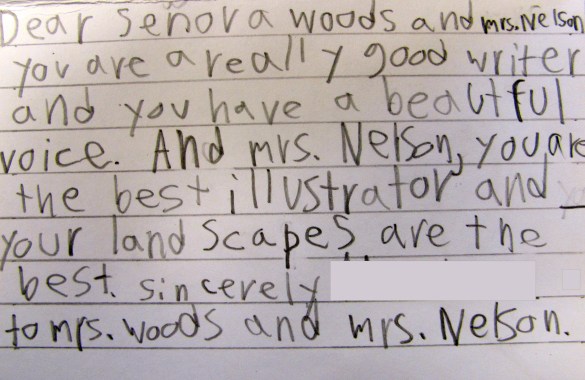 Dear Senora woods and mrs. Nelson
you are a really good writer
and you have a beautful
voice. And mrs. Nelson, you are
the best illustrator and
your land scapes are the
best. sincerely
to mrs. woods and mrs. Nelson.